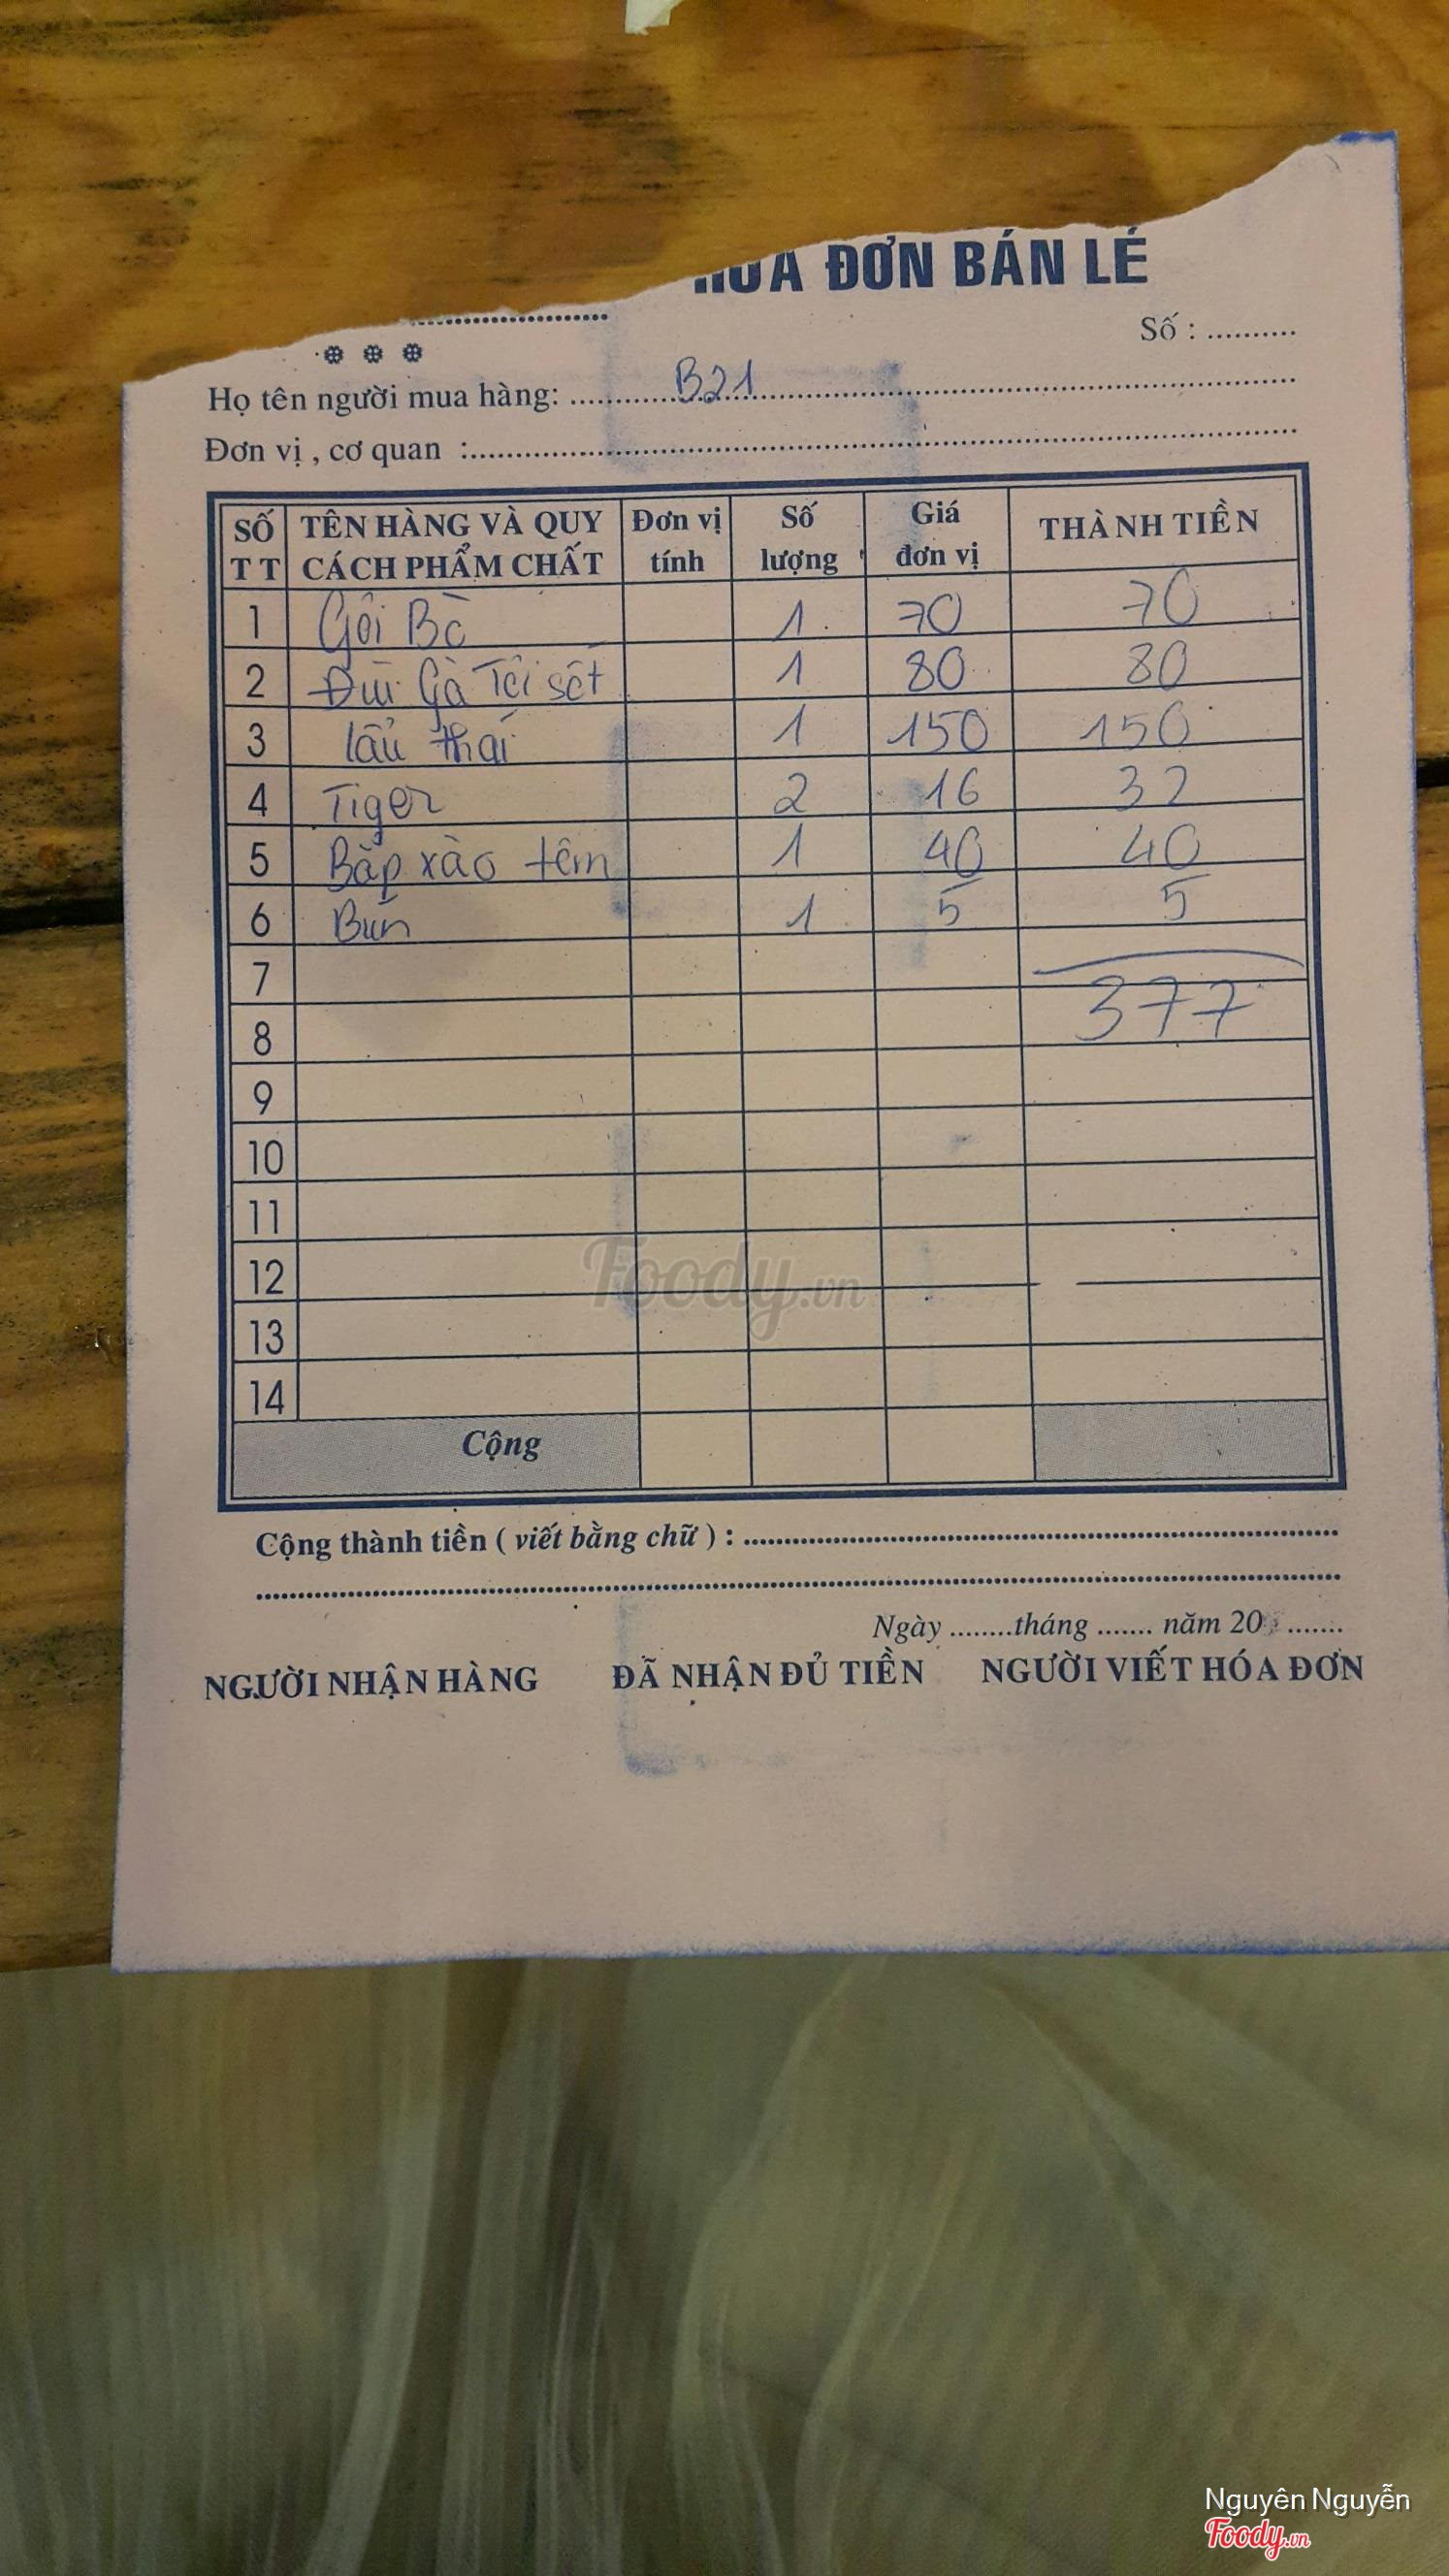 HÓA ĐƠN BÁN LẺ
Số : ..........
Họ tên người mua hàng: B21
Đơn vị , cơ quan :
SỐ TT | TÊN HÀNG VÀ QUY CÁCH PHẨM CHẤT | Đơn vị tính | Số lượng | Giá đơn vị | THÀNH TIỀN
1 Gỏi Bò 1 70 70
2 Đùi Gà Tỏi sốt 1 80 80
3 lẩu thái 1 150 150
4 Tiger 2 16 32
5 Bắp xào têm 1 40 40
6 Bún 1 5 5
7
8 377
9
10
11
12
13
14
Foody.vn
Cộng
Cộng thành tiền ( viết bằng chữ ) :
Ngày ........tháng ....... năm 20 .......
NGƯỜI NHẬN HÀNG ĐÃ NHẬN ĐỦ TIỀN NGƯỜI VIẾT HÓA ĐƠN
Nguyên Nguyễn
Foody.vn